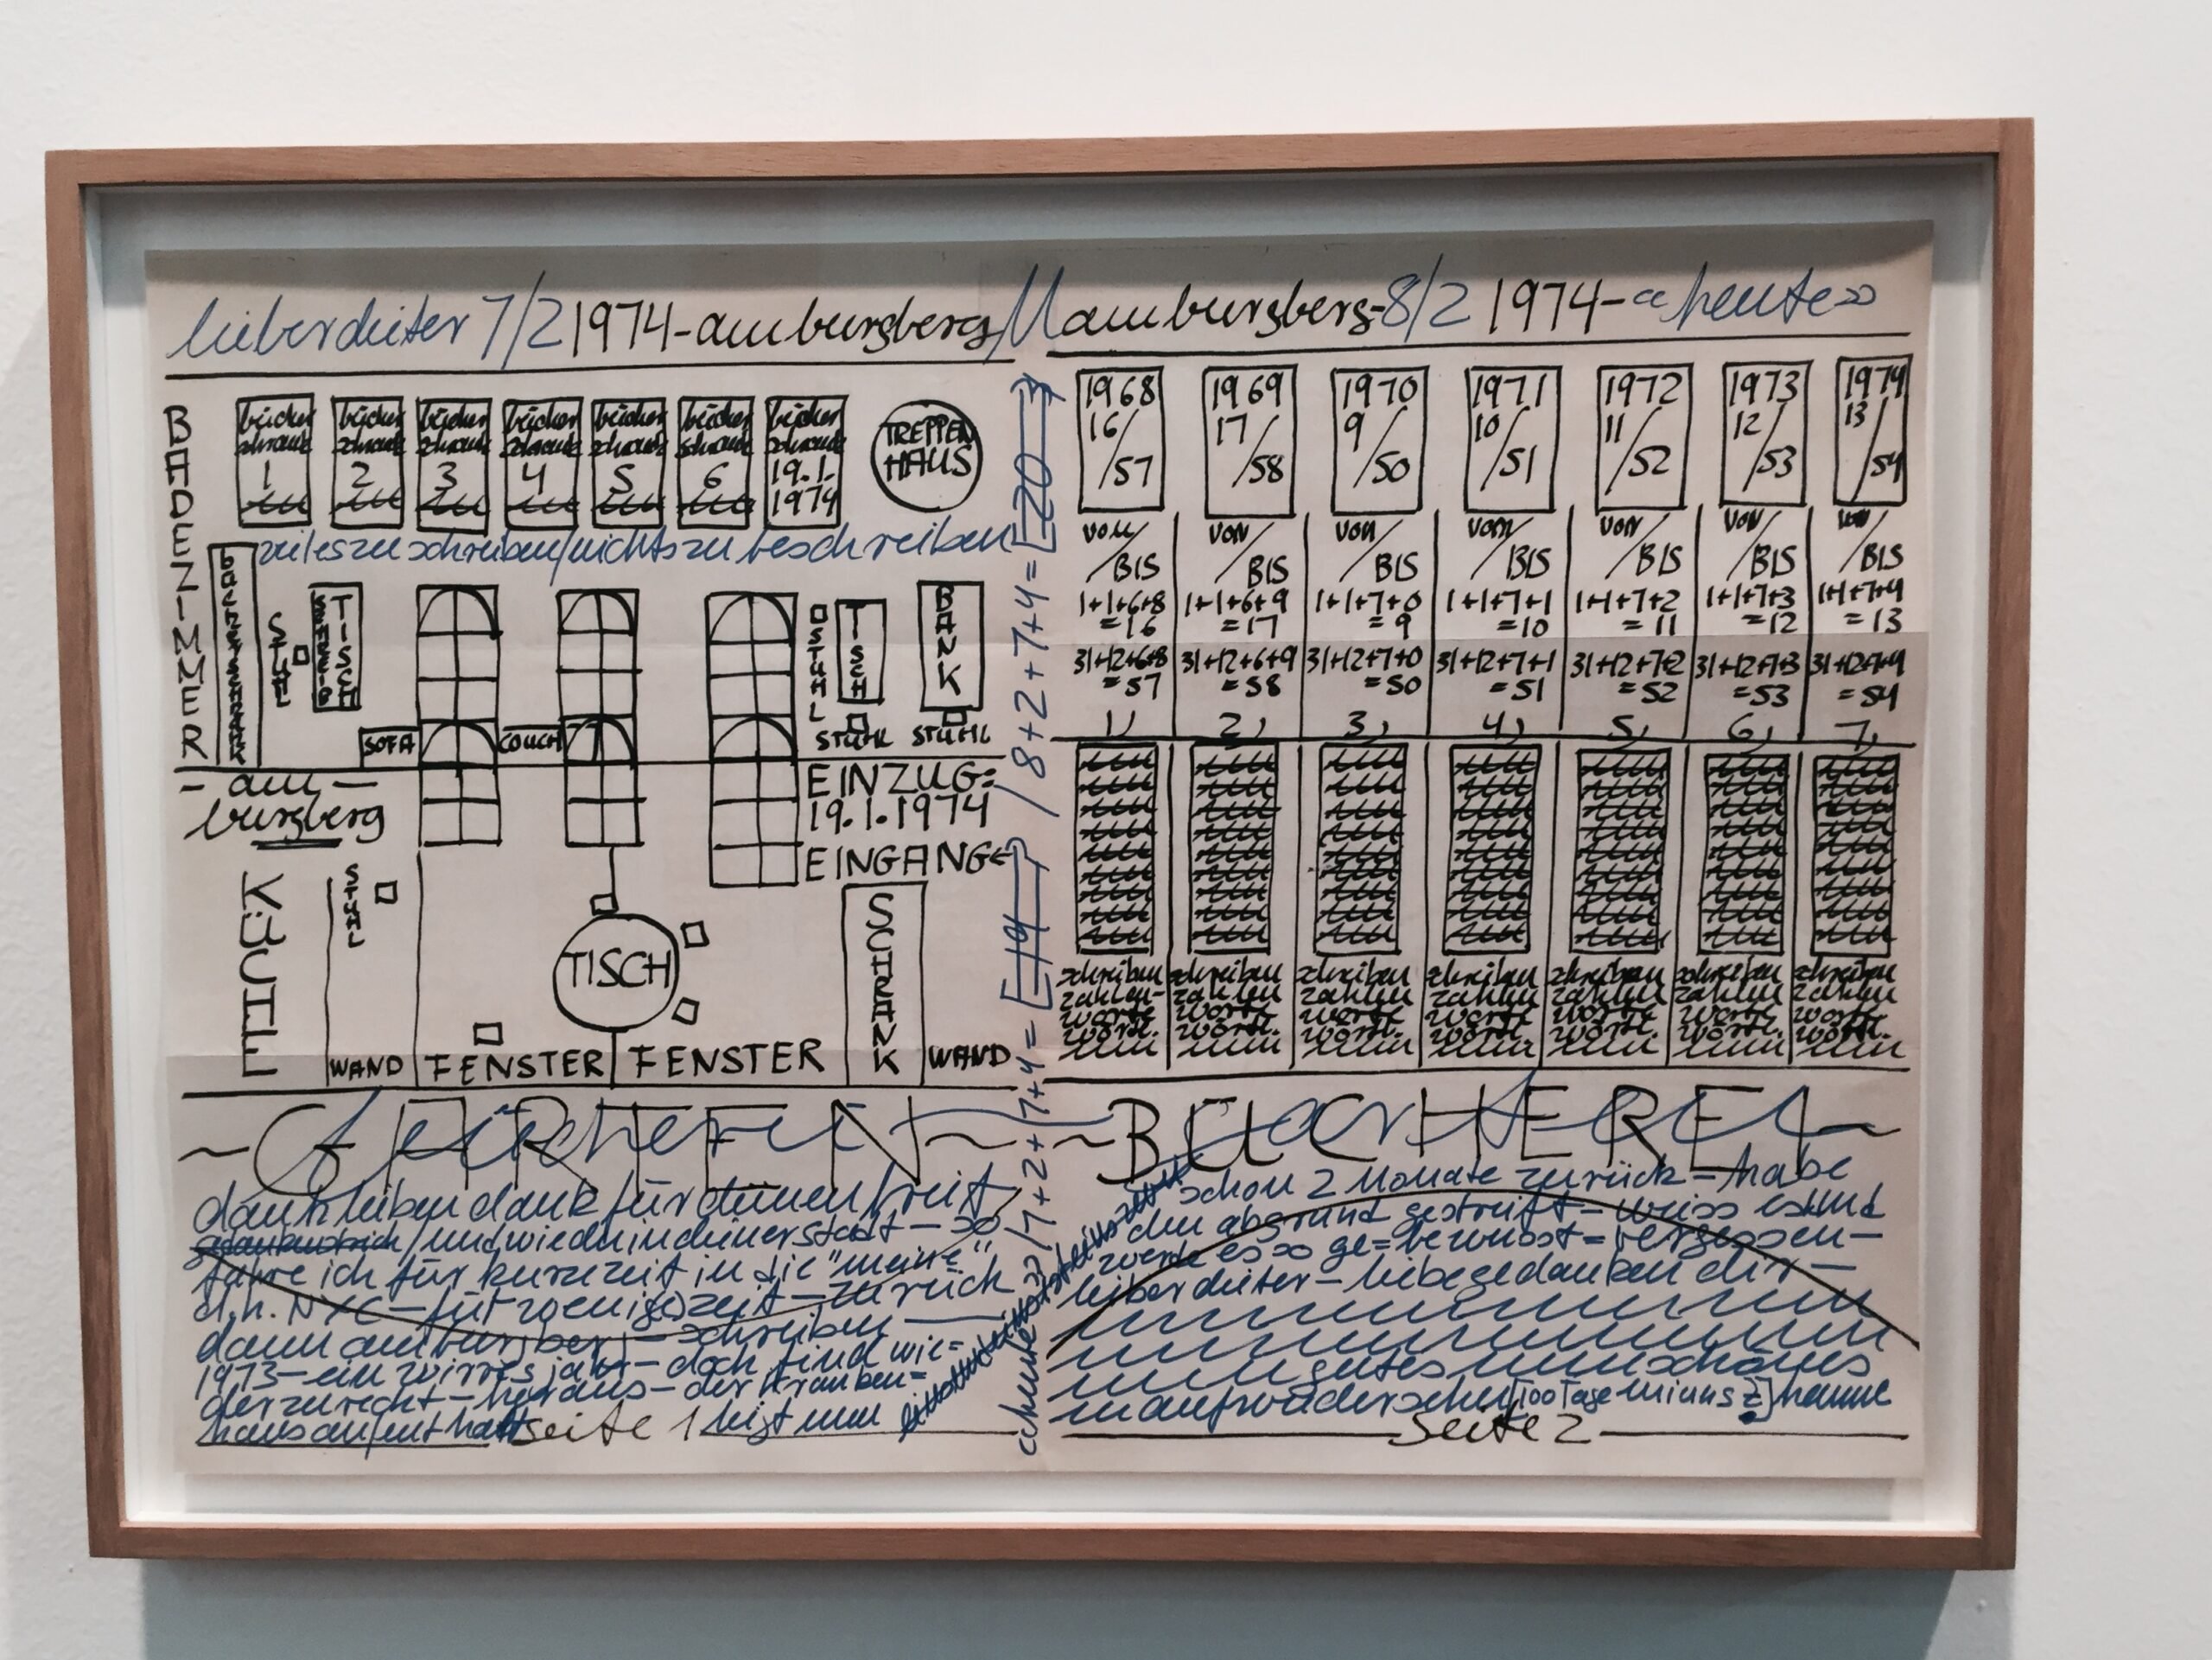 lieber dieter 7/2 1974-am burgberg
am burgberg-8/2 1974-«heute»
BADEZIMMER
bücher schrank 1
bücher schrank 2
bücher schrank 3
bücher schrank 4
bücher schrank 5
bücher schrank 6
bücher schrank 19.1. 1974
TREPPEN
HAUS
vieles zu schreiben/nichts zu beschreiben
STUHL
SCHREIB
TISCH
STUHL
TISCH
BANK
SOFA
COUCH
STUHL
STUHL
-am-
burgberg
EINZUG=
19.1.1974
EINGANG
KÜCHE
STUHL
TISCH
SCHRANK
WAND
FENSTER
FENSTER
WAND
GARTEN
dank lieben dank für deinen brief
/und wieder in deiner stadt-so
fahre ich für kurze zeit in die "meine"
d.h. NYC-für wenig(e) zeit-zurück
dann am burgberg-schreiben
1973-ein wirres jahr-doch find wie=
der zurecht-heraus-der kranken=
hausaufenthalt
seite 1 liegt nun
«heute»/7+2+7+4=[20] /8+2+7+4=
1968 16/57
1969 17/58
1970 9/50
1971 10/51
1972 11/52
1973 12/53
1974 13/54
von/BIS
von/BIS
von/BIS
von/BIS
von/BIS
von/BIS
von/BIS
1+1+6+8 =16
1+1+6+9 =17
1+1+7+0 =9
1+1+7+1 =10
1+1+7+2 =11
1+1+7+3 =12
1+1+7+4 =13
31+12+6+8 =57
31+12+6+9 =58
31+12+7+0 =50
31+12+7+1 =51
31+12+7+2 =52
31+12+7+3 =53
31+12+7+4 =54
1,
2,
3,
4,
5,
6,
7,
schreiben zahlen- worte wörtl.
schreiben zahlen worte wörtl.
schreiben zahlen worte wörtl.
schreiben zahlen worte wörtl.
schreiben zahlen worte wörtl.
schreiben zahlen worte wörtl.
schreiben zahlen worte wörtl.
~BÜCHEREI~
schon 2 Monate zurück-habe
den abgrund gestreift-weiss es und
werde es so ge=bewusst=vergessen-
lieber dieter-liebe gedanken dir-
gutes schönes
auf wiedersehen [100 Tage minus] hanne
seite 2